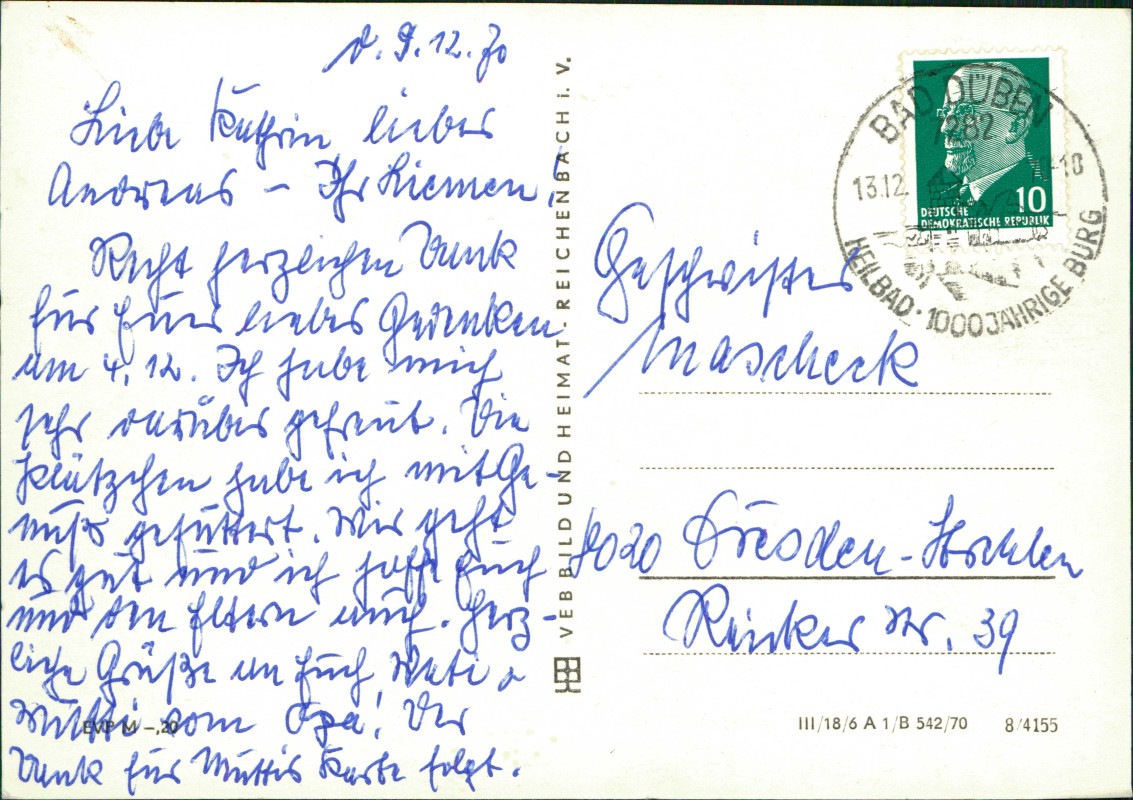 d. 9.12.70
Liebe Kathrin lieber
Andreas – Ihr Kiemen!
Recht herzlichen Dank
für Euer liebes Gedenken
am 4. 12. Ich habe mich
sehr darüber gefreut. Die
Plätzchen habe ich mit Ge-
nuß gefuttert. Mir geht
es gut und ich hoffe Euch
und den Eltern auch. Herz-
liche Grüße an Euch, Vati u
Mutti vom Opa! Der
Dank für Muttis Karte folgt.
EVP M –,20
VEB BILD UND HEIMAT REICHENBACH I. V.
BAD DÜBEN
7282
13.12.
-10
HEILBAD · 1000JÄHRIGE BURG
10
DEUTSCHE
DEMOKRATISCHE REPUBLIK
Geschwister
Mascheck
8020 Dresden-Strehlen
Rinker Str. 39
III/18/6 A 1/B 542/70 8/4155